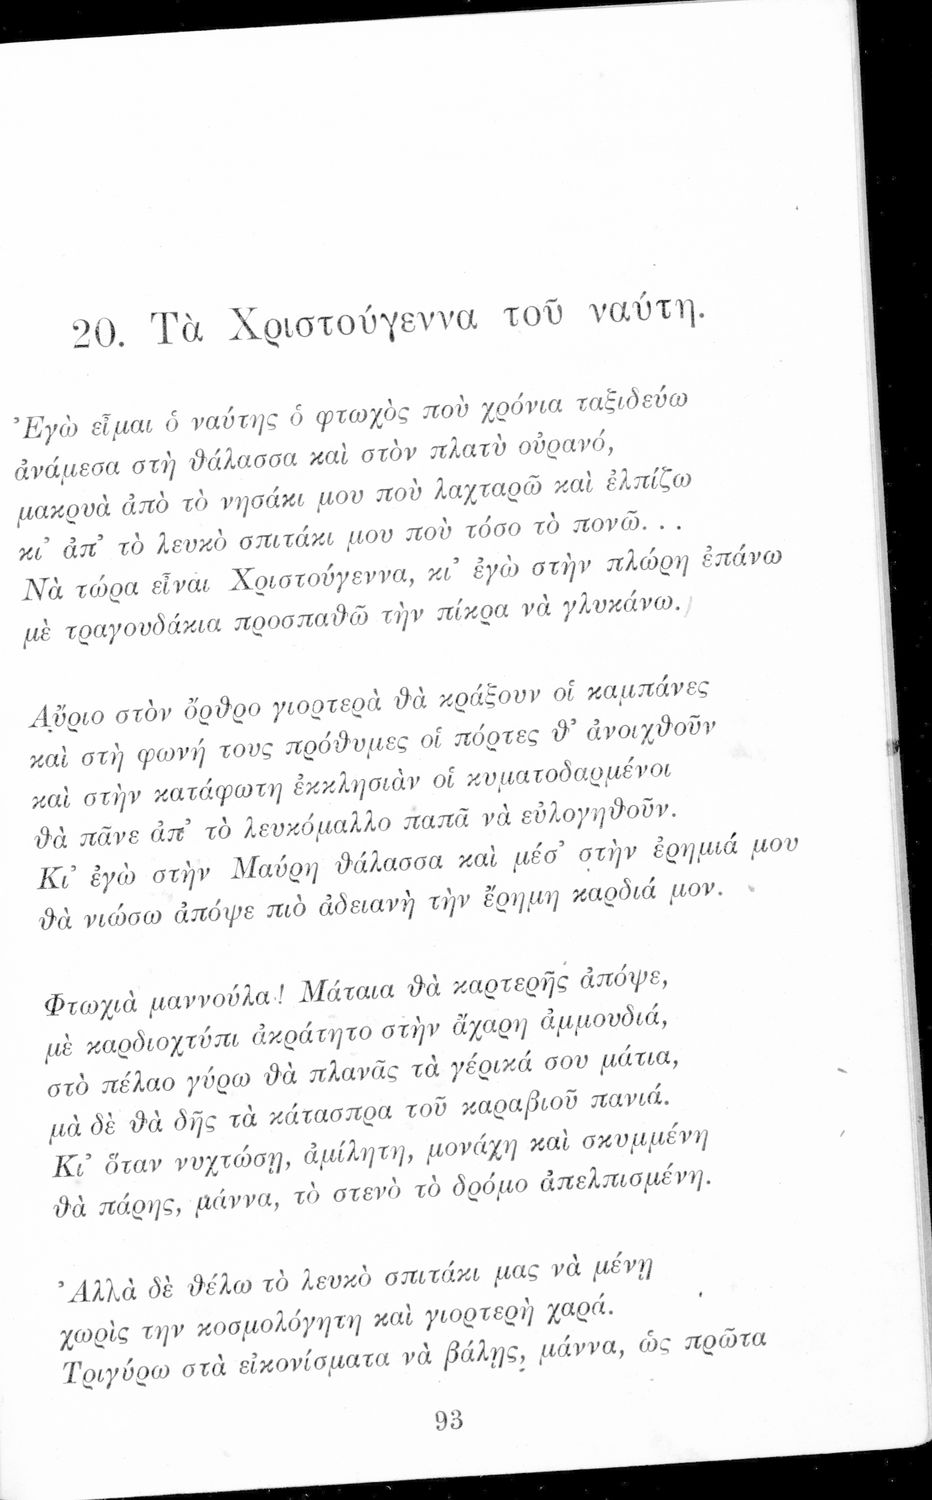 20. Τὰ Χριστούγεννα τοῦ ναύτη.
Ἐγὼ εἶμαι ὁ ναύτης ὁ φτωχὸς ποὺ χρόνια ταξιδεύω
ἀνάμεσα στὴ θάλασσα καὶ στὸν πλατὺ οὐρανό,
μακρυὰ ἀπὸ τὸ νησάκι μου ποὺ λαχταρῶ καὶ ἐλπίζω
κι' ἀπ' τὸ λευκὸ σπιτάκι μου ποὺ τόσο τὸ πονῶ. . .
Νὰ τώρα εἶναι Χριστούγεννα, κι' ἐγὼ στὴν πλώρη ἐπάνω
μὲ τραγουδάκια προσπαθῶ τὴν πίκρα νὰ γλυκάνω.
Αὔριο στὸν ὄρθρο γιορτερὰ θὰ κράξουν οἱ καμπάνες
καὶ στὴ φωνή τους πρόθυμες οἱ πόρτες θ' ἀνοιχθοῦν
καὶ στὴν κατάφωτη ἐκκλησιὰν οἱ κυματοδαρμένοι
θὰ πᾶνε ἀπ' τὸ λευκόμαλλο παπᾶ νὰ εὐλογηθοῦν.
Κι' ἐγὼ στὴν Μαύρη θάλασσα καὶ μέσ' στὴν ἐρημιά μου
θὰ νιώσω ἀπόψε πιὸ ἀδειανὴ τὴν ἔρημη καρδιά μον.
Φτωχιὰ μαννούλα! Μάταια θὰ καρτερῆς ἀπόψε,
μὲ καρδιοχτύπι ἀκράτητο στὴν ἄχαρη ἀμμουδιά,
στὸ πέλαο γύρω θὰ πλανᾶς τὰ γέρικά σου μάτια,
μὰ δὲ θὰ δῆς τὰ κάτασπρα τοῦ καραβιοῦ πανιά.
Κι' ὅταν νυχτώσῃ, ἀμίλητη, μονάχη καὶ σκυμμένη
θὰ πάρης, μάννα, τὸ στενὸ τὸ δρόμο ἀπελπισμένη.
Ἀλλὰ δὲ θέλω τὸ λευκὸ σπιτάκι μας νὰ μένῃ
χωρὶς την κοσμολόγητη καὶ γιορτερὴ χαρά.
Τριγύρω στὰ εἰκονίσματα νὰ βάλῃς, μάννα, ὡς πρῶτα
93